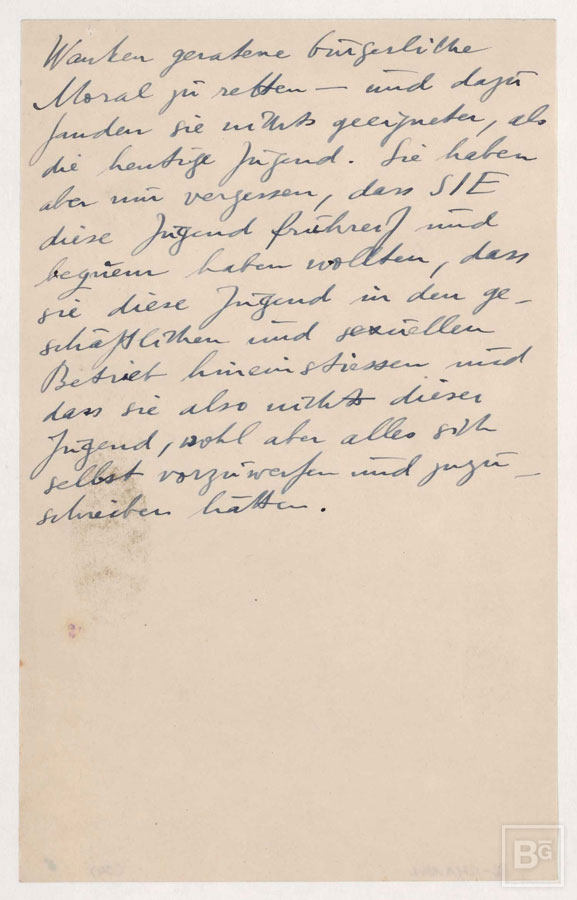 Wanken geratene bürgerliche
Moral zu retten — und dazu
fanden sie nichts geeigneter, als
die heutige Jugend. Sie haben
aber nur vergessen, dass SIE
diese Jugend frühreif und
bequem haben wollten, dass
sie diese Jugend in den ge-
schäftlichen und sexuellen
Betrieb hineinstiessen und
dass sie also nichts dieser
Jugend, wohl aber alles sich
selbst vorzuwerfen und zuzu-
schreiben hätten.
BG